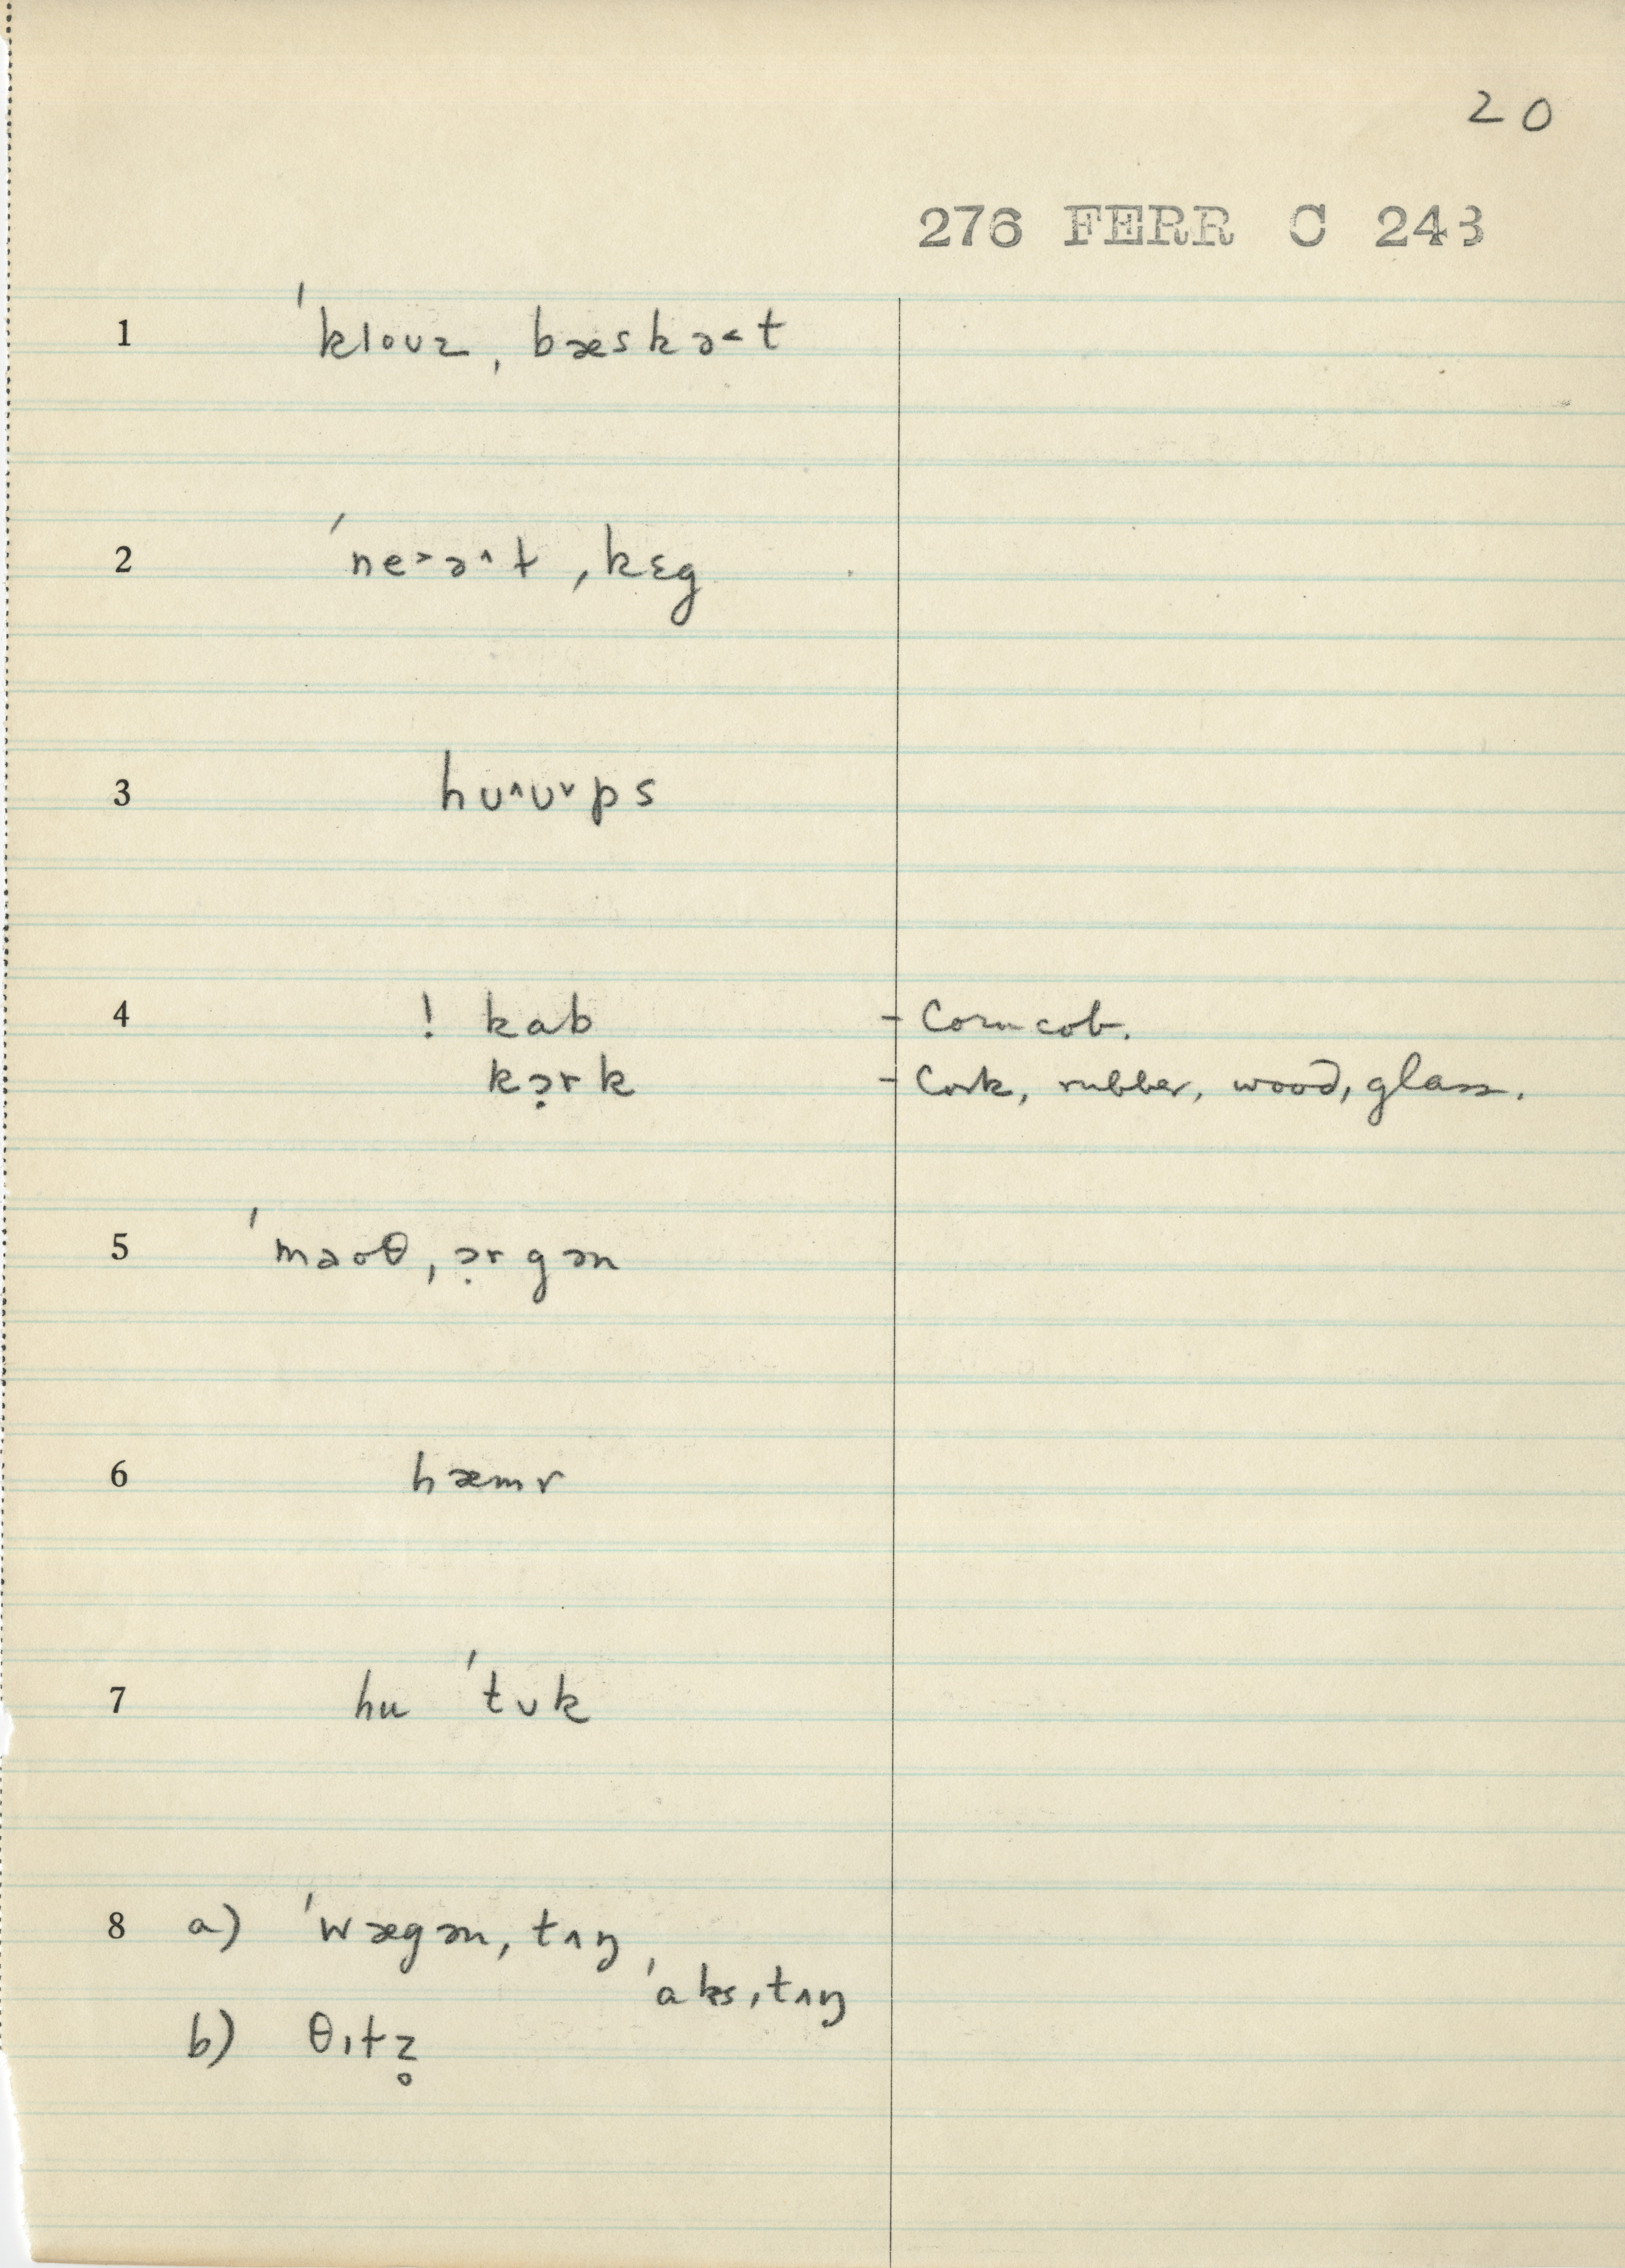 20
276 FERR C 243
1 ˈklouz ˌbæskə˂t
2 ˈne˃ə˄t ˌkɛg
3 hʊ˄ʊ˅ps
4 ! kab – Corn cob.
kə̣rk – Cork, rubber, wood, glass.
5 ˈmaoθ ˌə̣rgən
6 hæmr
7 hu ˈtʊk
8 a) ˈwægən ˌtʌŋ
ˈaks ˌtʌŋ
b) θɪtz̥